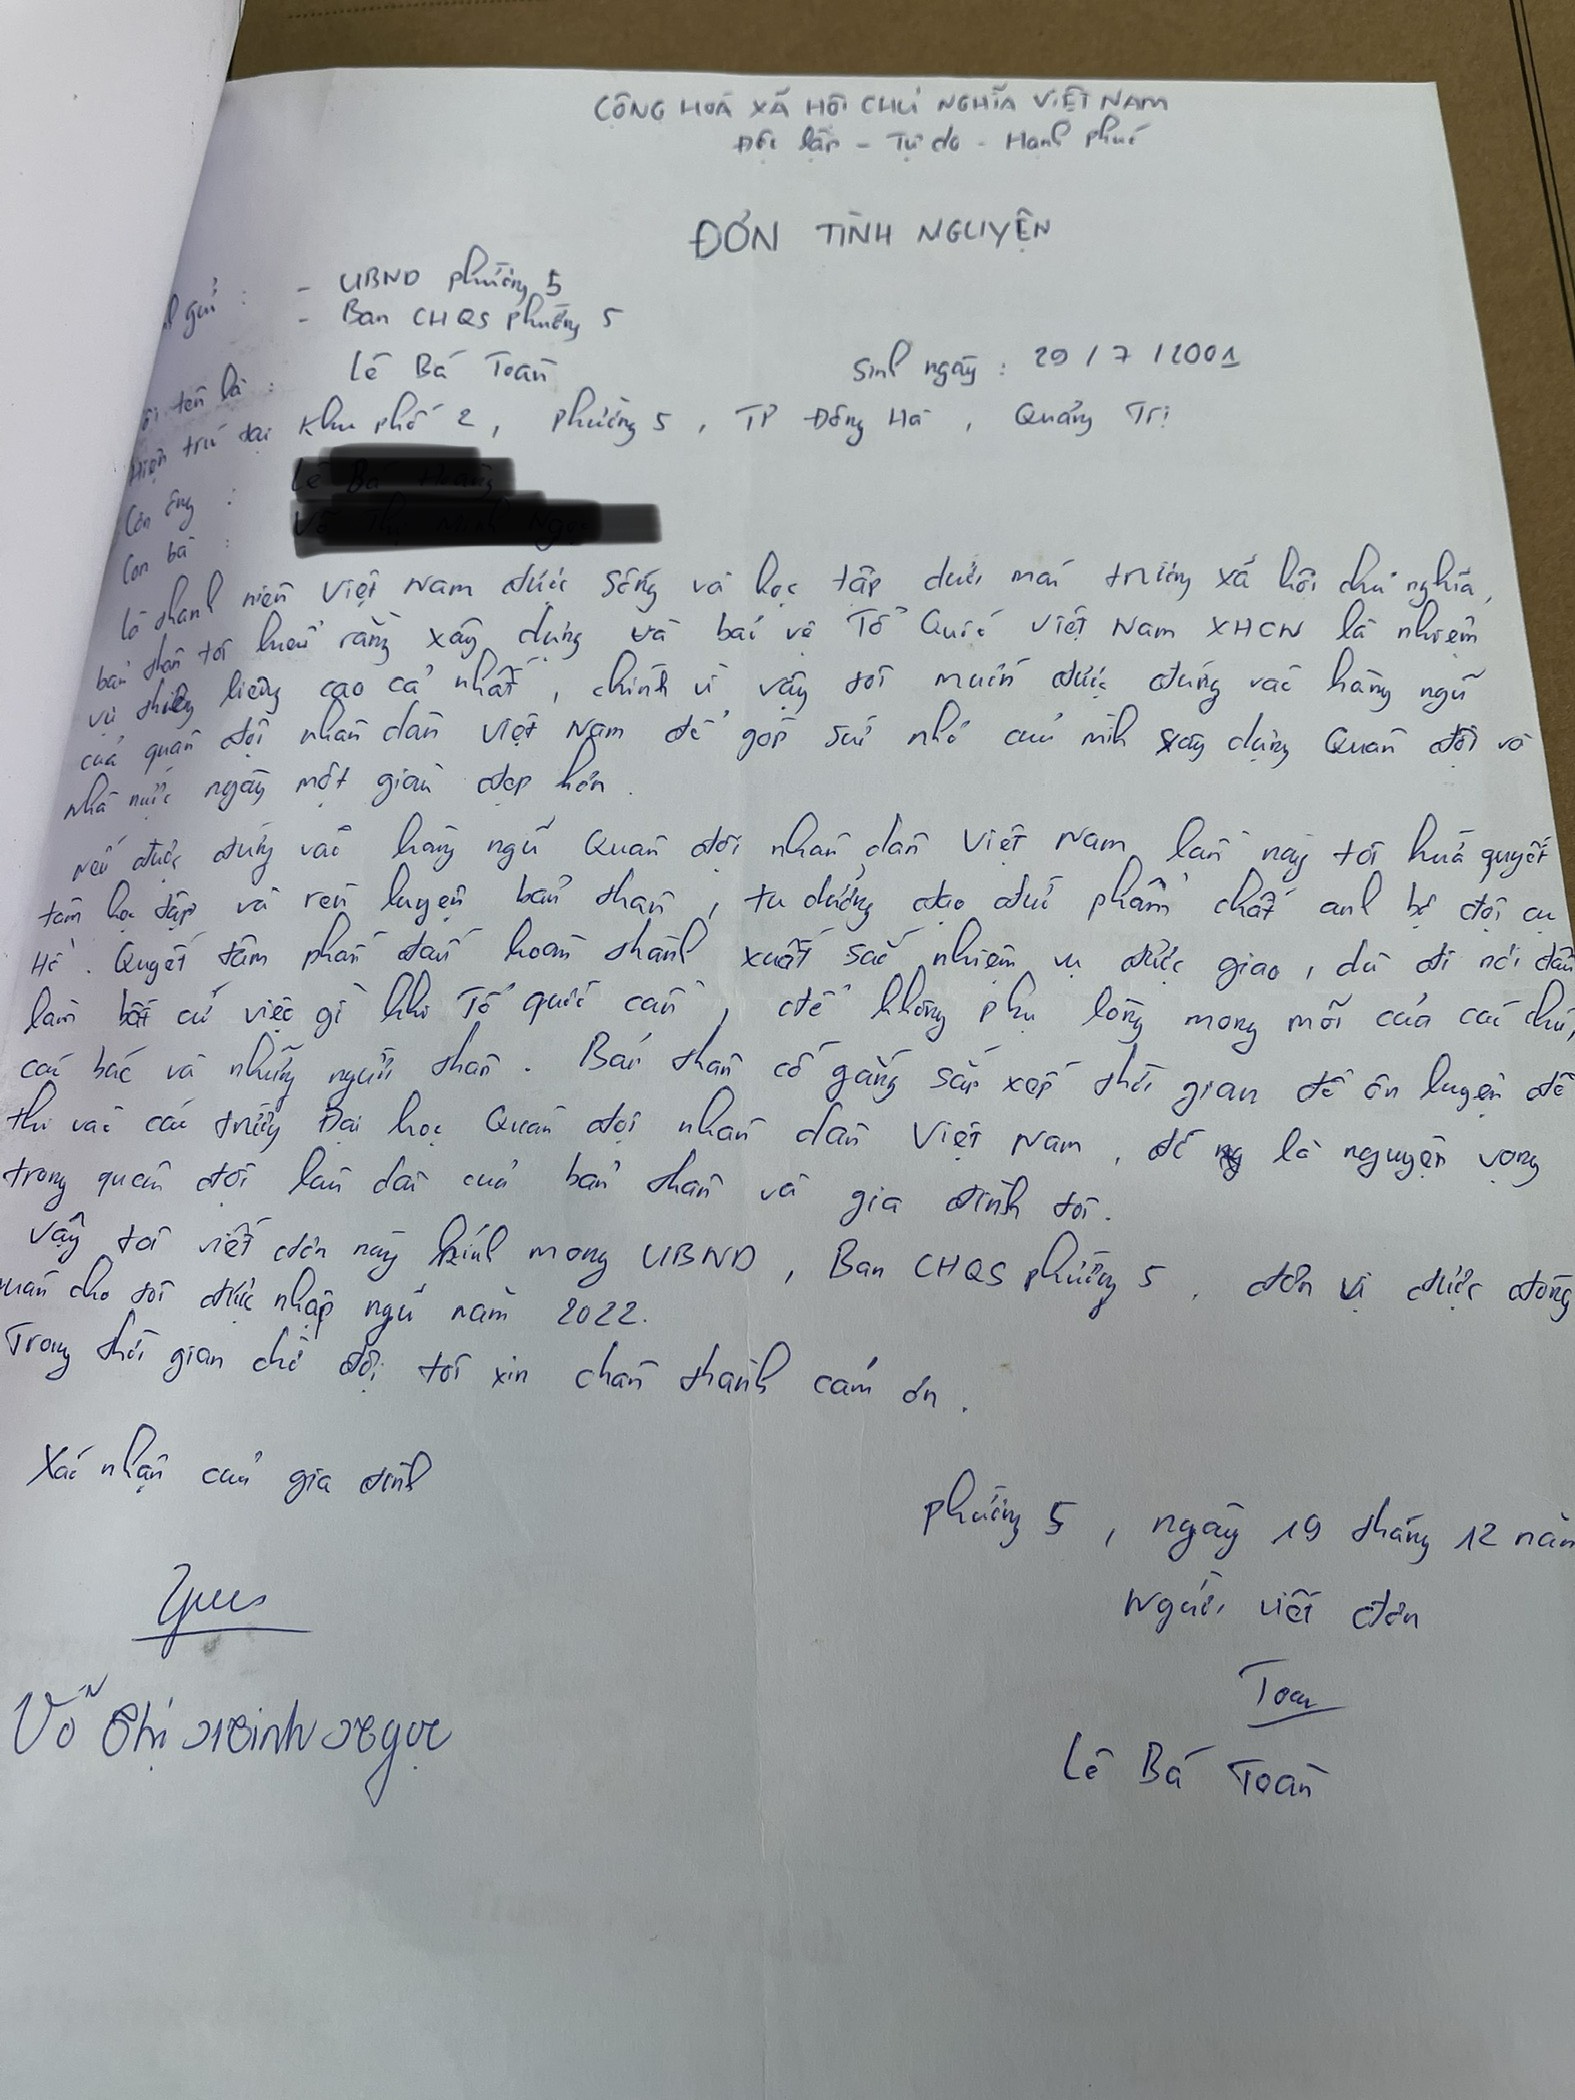 CỘNG HOÀ XÃ HỘI CHỦ NGHĨA VIỆT NAM
Độc lập - Tự do - Hạnh phúc
ĐƠN TÌNH NGUYỆN
gửi : - UBND phường 5
- Ban CHQS phường 5
tên là : Lê Bá Toàn Sinh ngày : 29 / 7 / 2001
Hiện trú tại Khu phố 2, phường 5, TP Đông Hà, Quảng Trị
Con ông :
Con bà :
Là thanh niên Việt Nam được sống và học tập dưới mái trường xã hội chủ nghĩa,
bản thân tôi hiểu rằng xây dựng và bảo vệ Tổ Quốc Việt Nam XHCN là nhiệm
vụ thiêng liêng cao cả nhất, chính vì vậy tôi muốn được đứng vào hàng ngũ
của quân đội nhân dân Việt Nam để góp sức nhỏ của mình xây dựng Quân đội và
nhà nước ngày một giàu đẹp hơn.
Nếu được đứng vào hàng ngũ Quân đội nhân dân Việt Nam lần này tôi hứa quyết
tâm học tập và rèn luyện bản thân, tu dưỡng đạo đức phẩm chất anh bộ đội cụ
Hồ. Quyết tâm phấn đấu hoàn thành xuất sắc nhiệm vụ được giao, dù đi nơi đâu
làm bất cứ việc gì khi Tổ quốc cần, để không phụ lòng mong mỏi của các chú,
các bác và những người thân. Bản thân cố gắng sắp xếp thời gian để ôn luyện để
thi vào các trường Đại học Quân đội nhân dân Việt Nam, đó là nguyện vọng
trong quân đội lâu dài của bản thân và gia đình tôi.
Vậy tôi viết đơn này kính mong UBND, Ban CHQS phường 5, đơn vị được đóng
quân cho tôi được nhập ngũ năm 2022.
Trong thời gian chờ đợi tôi xin chân thành cảm ơn.
Xác nhận của gia đình
Phường 5, ngày 19 tháng 12 năm
Người viết đơn
Toàn
Võ Thị Minh Ngọc
Lê Bá Toàn